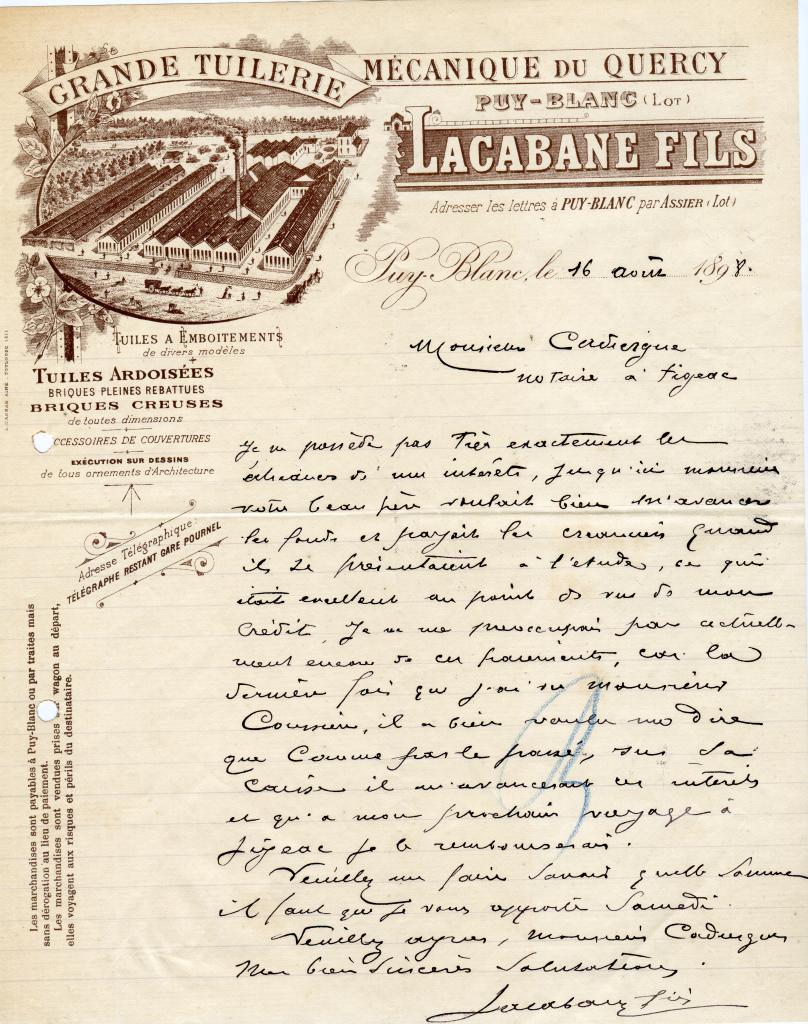 GRANDE TUILERIE MÉCANIQUE DU QUERCY
PUY-BLANC (LOT)
LACABANE FILS
Adresser les lettres à PUY-BLANC par ASSIER (Lot)
Puy-Blanc, le 16 août 1898.
TUILES A EMBOITEMENTS
de divers modèles
TUILES ARDOISÉES
BRIQUES PLEINES REBATTUES
BRIQUES CREUSES
de toutes dimensions
CCESSOIRES DE COUVERTURES
EXÉCUTION SUR DESSINS
de tous ornements d'Architecture
Adresse Télégraphique:
TÉLÉGRAPHE RESTANT GARE POURNEL
Les marchandises sont payables à Puy-Blanc ou par traites mais
sans dérogation au lieu de paiement.
Les marchandises sont vendues prises wagon au départ,
elles voyagent aux risques et périls du destinataire.
Monsieur Cadiergue
notaire à Figeac
Je ne possède pas très exactement les
échéances des mes intérêts, jusqu'ici monsieur
votre beau père voulait bien m'avancer
les fonds et payait les créanciers quand
ils se présentaient à l'étude, ce qui
était excellent au point de vue de mon
crédit. Je ne me préoccupais pas actuelle-
ment encore de ces paiements, car la
dernière fois que j'ai vu monsieur
il a bien voulu me dire
que comme par le passé, sur sa
caisse il m'avancerait ces intérêts
et qu'a mon prochain voyage à
Figeac je le rembourserais.
Veuillez me faire savoir quelle somme
il faut que je vous apporte Samedi.
Veuillez agréer, monsieur Cadiergue
mes bien sincères salutations.
Lacabane fils